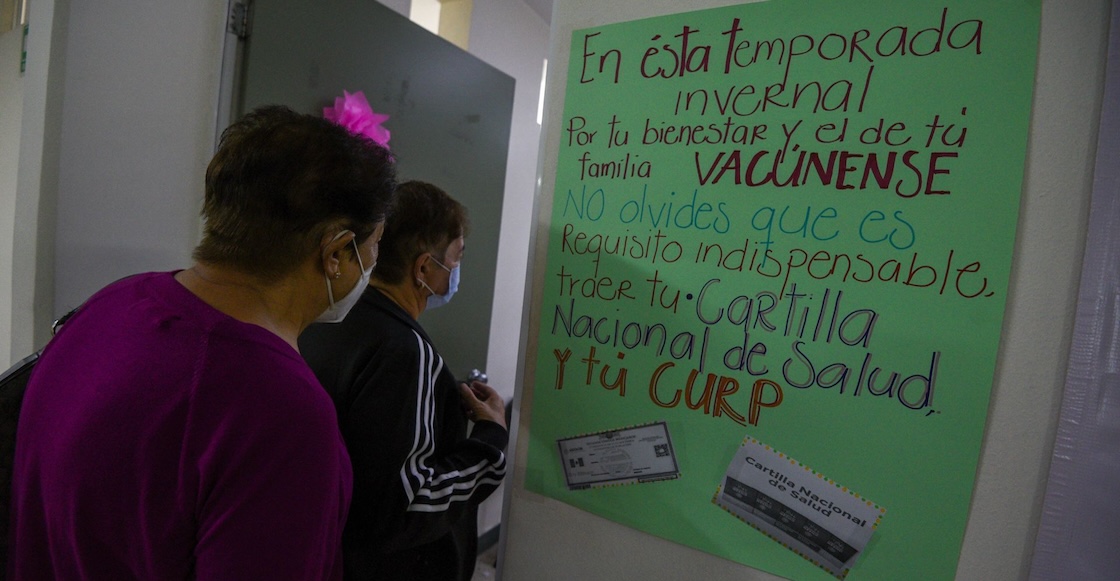 En ésta temporada
invernal
Por tu bienestar y el de tú
familia VACÚNENSE
NO olvides que es
Requisito indispensable,
traer tu · Cartilla
Nacional de Salud,
Y tú CURP
Cartilla Nacional
de Salud